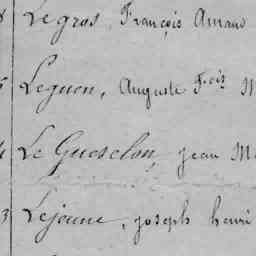 8 Legros, François Amand
Leguen, Auguste F.ois M
Le Guesclon, Jean M
3 Lejeune, joseph henri